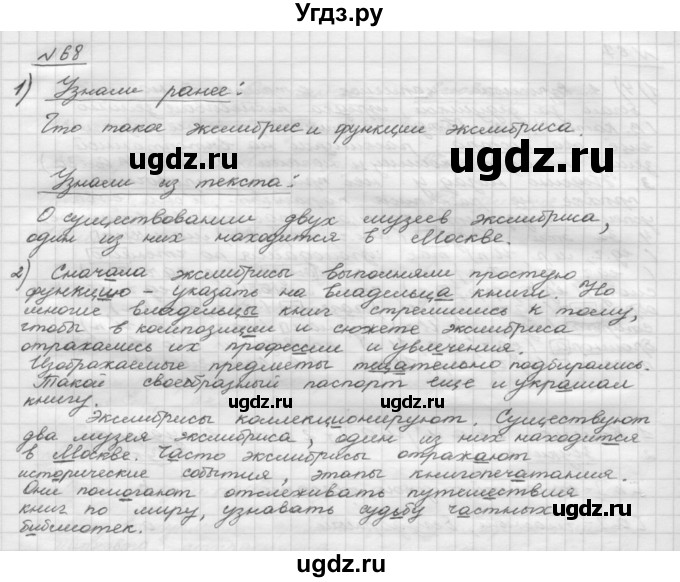 Угдз.ру
№68
1) Узнали ранее:
Что такое экслибрис и функции экслибриса.
ugdz.ru ugdz.ru
Узнали из текста:
О существовании двух музеев экслибриса,
один из них находится в Москве.
2) Сначала экслибрисы выполняли простую
функцию – указать на владельца книги. Но
многие владельцы книг стремились к тому,
чтобы в композиции и сюжете экслибриса
отражались их профессии и увлечения.
Изображаемые предметы тщательно подбирались.
Такой своеобразный паспорт еще и украшал
книгу.
ugdz.ru ugdz.ru
Экслибрисы коллекционируют. Существуют
два музея экслибриса, один из них находится
в Москве. Часто экслибрисы отражают
исторические события, этапы книгопечатания.
Они помогают отслеживать путешествия
книг по миру, узнавать судьбу частных
библиотек.
ugdz.ru ugdz.ru
Угдз.ру